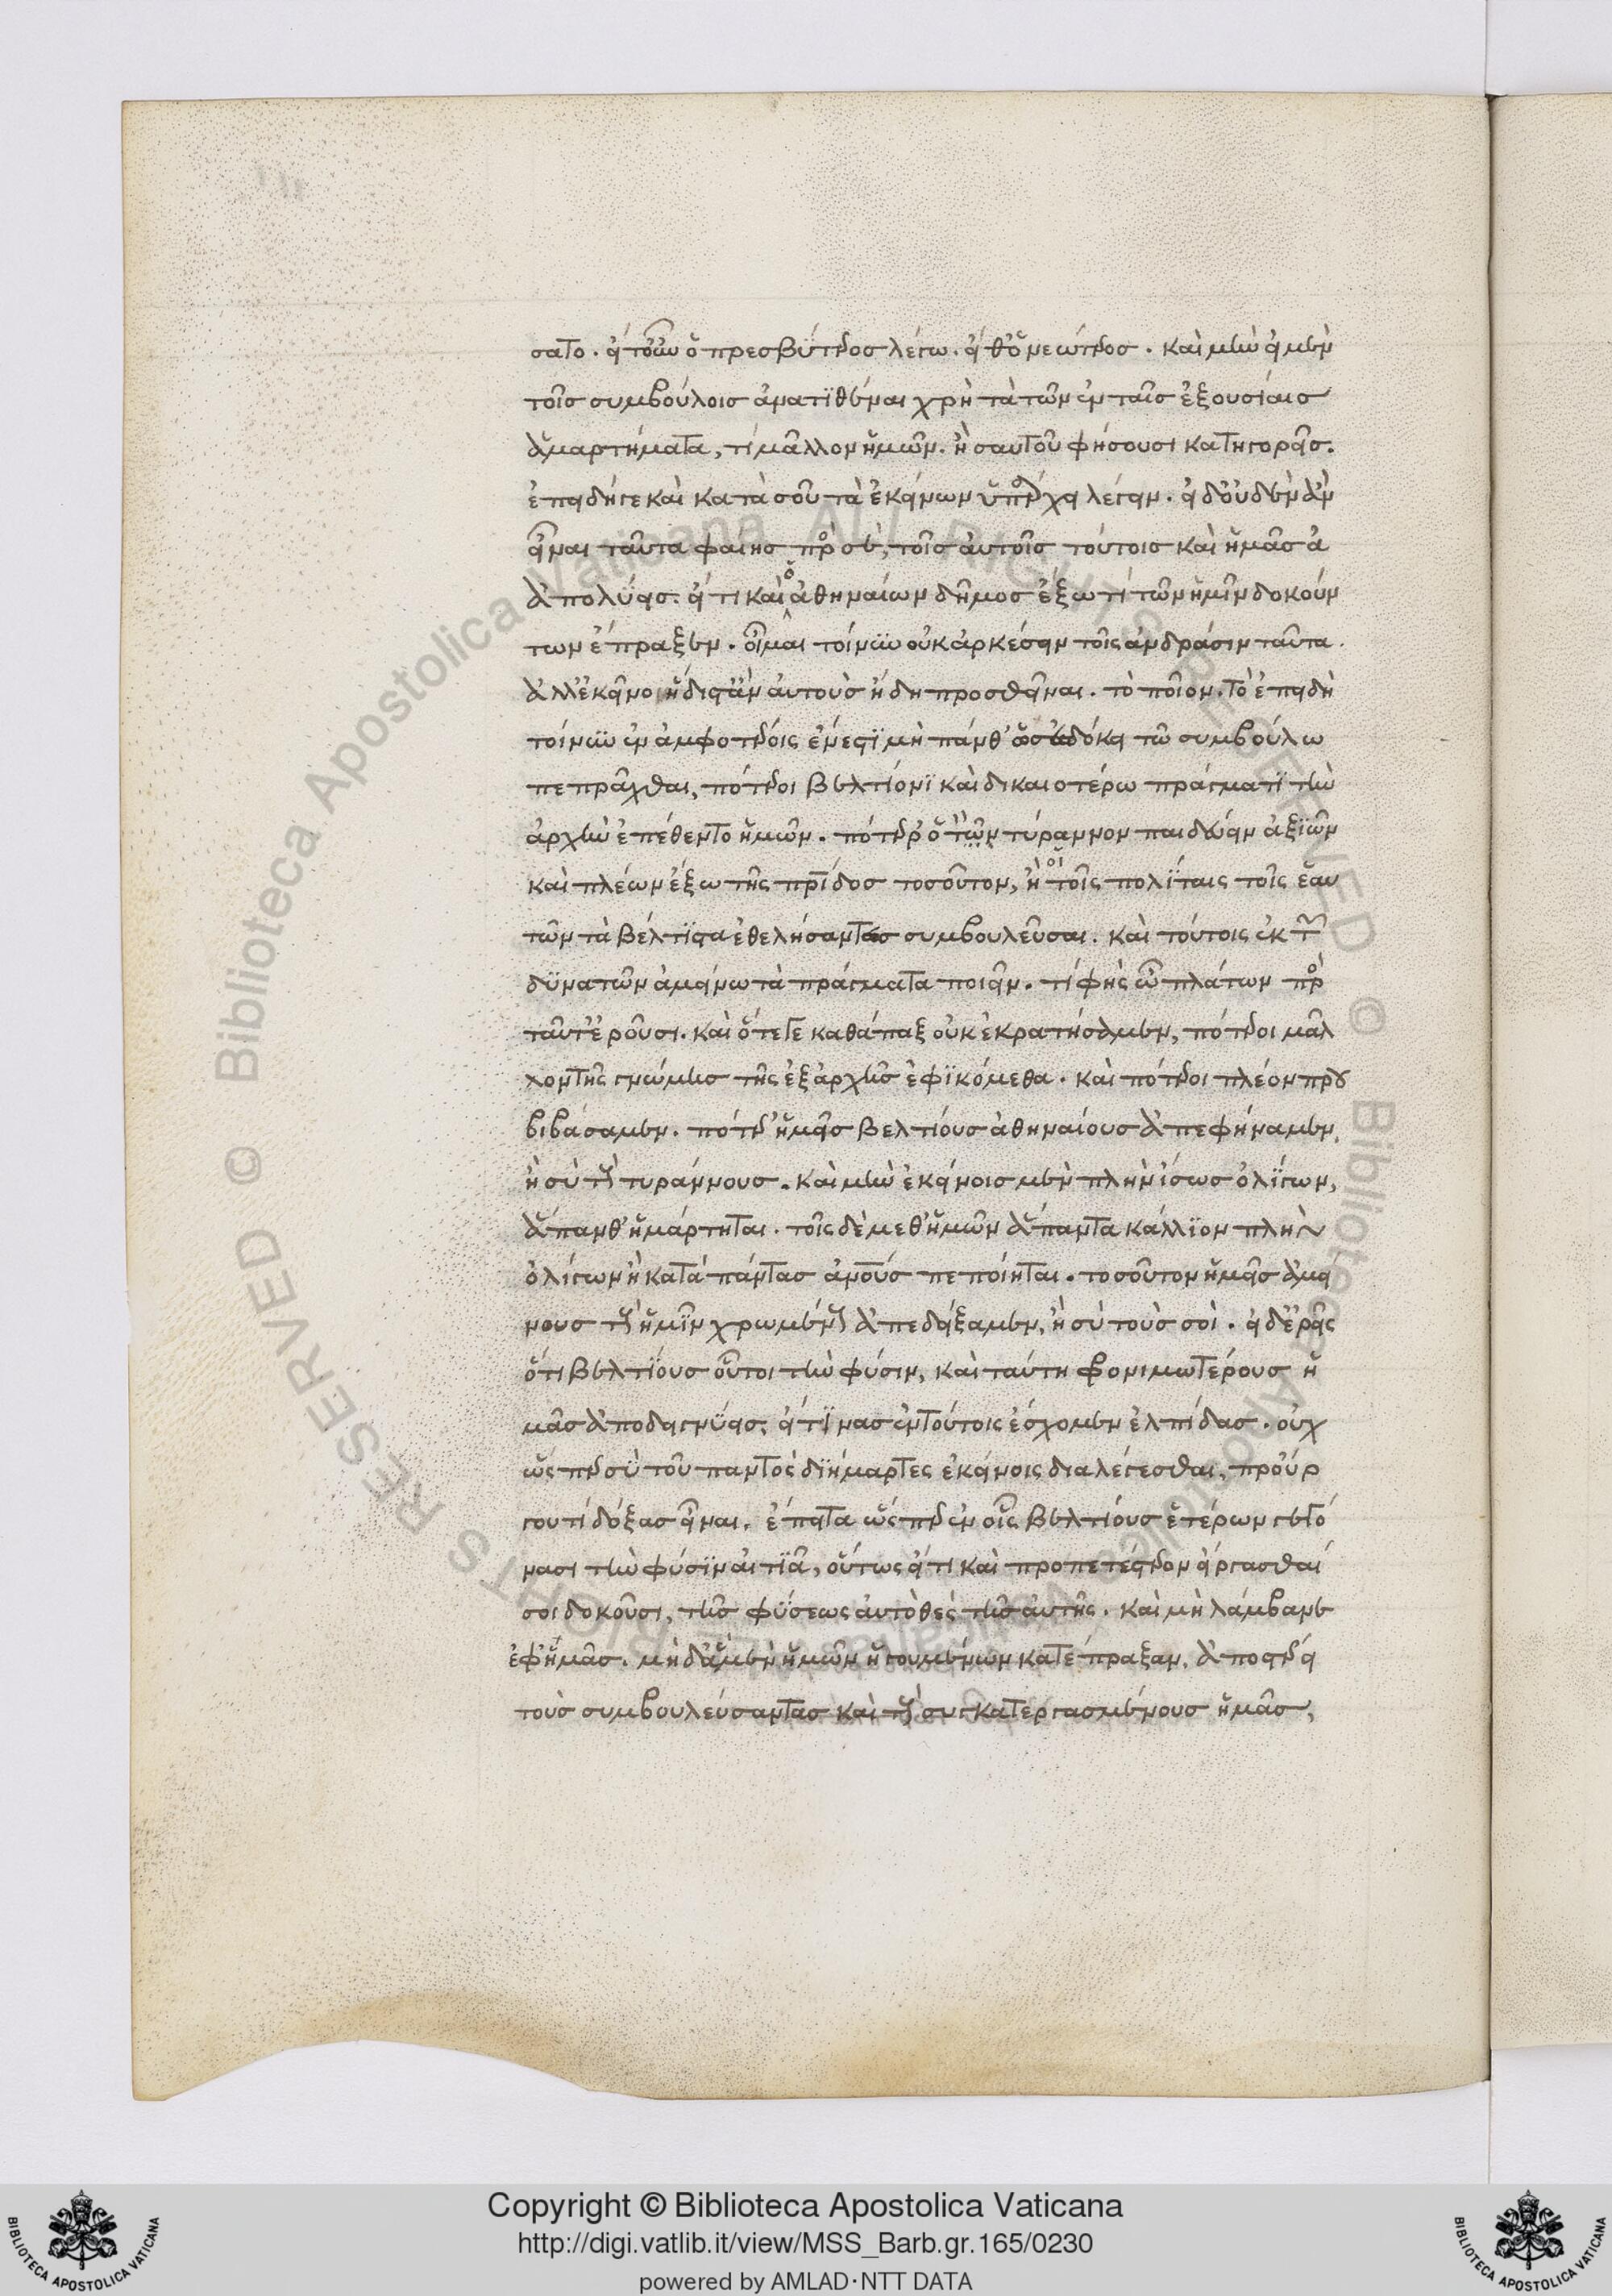 σατο. εἴτ' οὖν ὁ πρεσβύτερος λέγω. εἴθ' ὁ νεώτερος. καὶ μὴν εἰ μὲν
τοῖς συμβούλοις ἀνατιθέναι χρὴ τὰ τῶν ἐν ταῖς ἐξουσίαις
ἁμαρτήματα, τί μᾶλλον ἡμῶν. ἢ σαυτοῦ φήσουσι κατηγορεῖς.
ἐπειδήγε καὶ κατὰ σοῦ τὰ ἐκείνων ὑπάρχει λέγειν. εἰ δ' οὐδὲν ἂν
εἶναι ταῦτα φαίης πρὸς σὲ, τοῖς αὐτοῖς τούτοις καὶ ἡμᾶς ἀ
ἀπολύεις. εἴ τι καὶ ὁ ἀθηναίων δῆμος ἔξω τι τῶν ἡμῖν δοκούν
των ἔπραξεν. οἶμαι τοίνυν οὐκ ἀρκέσειν τοῖς ἀνδράσιν ταῦτα.
ἀλλ' ἐκεῖνο ἥδις' ἂν αὐτοὺς ἤδη προσθεῖναι. τὸ ποῖον. τὸ ἐπειδὴ
τοίνυν ἐν ἀμφοτέροις ἔνεςι μὴ πάνθ' ὅσα ἐδόκει τῷ συμβούλω
πεπρᾶχθαι, πότεροι βελτίονι καὶ δικαιοτέρω πράγματι τὴν
ἀρχὴν ἐπέθεντο ἡμῶν. πότερ' ὁ τὸν τύραννον παιδεύειν ἀξιῶν
καὶ πλέων ἔξω τῆς πρίδος τοσοῦτον, ἢ οἱ τοῖς πολίταις τοῖς ἑαυ
τῶν τὰ βέλτιςα ἐθελήσαντες συμβουλεῦσαι. καὶ τούτοις ἐκ τῶν
δυνατῶν ἀμείνω τὰ πράγματα ποιεῖν. τί φὴς ὦ πλάτων πρὸς
ταῦτ' ἐροῦσι. καὶ ὅτε γε καθάπαξ οὐκ ἐκρατήσαμεν, πότεροι μᾶλ
λον τῆς γνώμης τῆς ἐξ ἀρχῆς ἐφικόμεθα. καὶ πότεροι πλέον πρου
βιβάσαμεν. πότερ' ἡμεῖς βελτίους ἀθηναίους ἀπεφήναμεν,
ἢ σὺ τοὺς τυράννους. καὶ μὴν ἐκείνοις μὲν πλὴν ἴσως ὀλίγων,
ἅπανθ' ἡμάρτηται. τοῖς δὲ μεθ' ἡμῶν ἅπαντα κάλλιον πλὴν
ὀλίγων ἢ κατὰ πάντας ἀνοὺς πεποίηται. τοσοῦτον ἡμεῖς ἀμεί
νους τοὺς ἡμῖν χρωμένους ἀπεδείξαμεν, ἢ σὺ τοὺς σοί. εἰ δ' ἐρεῖς
ὅτι βελτίους οὗτοι τὴν φύσιν, καὶ ταύτη φρονιμωτέρους ἡ
μᾶς ἀποδεικνύεις, εἴ τινας ἐν τούτοις ἔσχομεν ἐλπίδας. οὐχ
ὥςπερ σὺ τοῦ παντὸς διήμαρτες ἐκείνοις διαλέγεσθαι, προὔρ
γου τί δόξας εἶναι. ἔπειτα ὥςπερ ἐν οἷς βελτίους ἑτέρων γεγό
νασι τὴν φύσιν αἰτιᾶ, οὕτως εἴ τι καὶ προπετέςερον εἰργάσθαί
σοι δοκοῦσι, τῆς φύσεως αὐτὸ θὲς τῆς αὐτῆς. καὶ μὴ λάμβανε
ἐφ' ἡμᾶς. μὴ δ' ἃ μὲν ἡμῶν ἡγουμένων κατέπραξαν, ἀποςέρει
τοὺς συμβουλεύσαντας καὶ τοὺς συγκατεργασμένους ἡμᾶς,
Copyright © Biblioteca Apostolica Vaticana
http://digi.vatlib.it/view/MSS_Barb.gr.165/0230
powered by AMLAD·NTT DATA